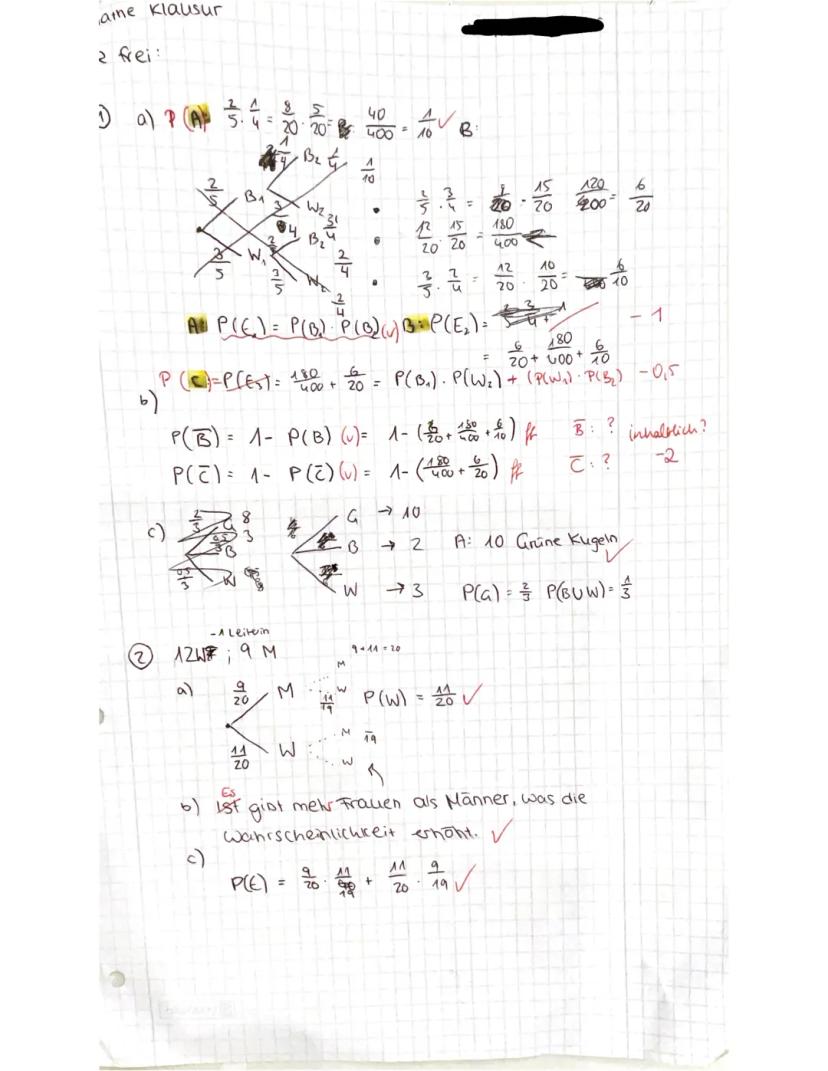 ame Klausur
2 frei:
① a) P(A) 2/5 · 1/4 = 8/20 · 5/20 = 40/400 = 1/10 ✓ B:
1/4 B₂ 1/4 1/10
2/5 B₁ 3/4 W₂ • 2/5 · 3/4 = 8/20 · 15/20 120/400 = 6/20
B₂ 3/4 • 12/20 · 15/20 = 180/400
3/5 W₁ 2/4 • 3/5 · 2/4 = 12/20 · 10/20 = 6/10
3/5 W₂ 2/4
A: P(E₁) = P(B₁) · P(B₂) (v) B: P(E₂) = - 1
= 6/20 + 180/400 + 6/10
P(C) = P(E₃) = 180/400 + 6/20 = P(B₁) · P(W₂) + (P(W₁) · P(B₂)) -0,5
b)
P(B̅) = 1 - P(B) (v) = 1 - (6/20 + 180/400 + 6/10) ff B̅: ? inhaltlich?
P(C̅) = 1 - P(C̅) (v) = 1 - (180/400 + 6/20) ff C̅: ? -2
c) 2/3 G 8 G → 10
0,5/3 B 3 B → 2 A: 10 Grüne Kugeln ✓
0,5/3 W W → 3 P(G) = 2/3 P(B∪W) = 1/3
-1 Leiterin
② 12W ; 9 M 9+11=20
a) 9/20 M M W 11/19 P(W) = 11/20 ✓
11/20 W M 19 W
b) Es
Ist gibt mehr Frauen als Männer, was die
Wahrscheinlichkeit erhöht. ✓
c)
P(E) = 9/20 · 11/19 + 11/20 · 9/19 ✓